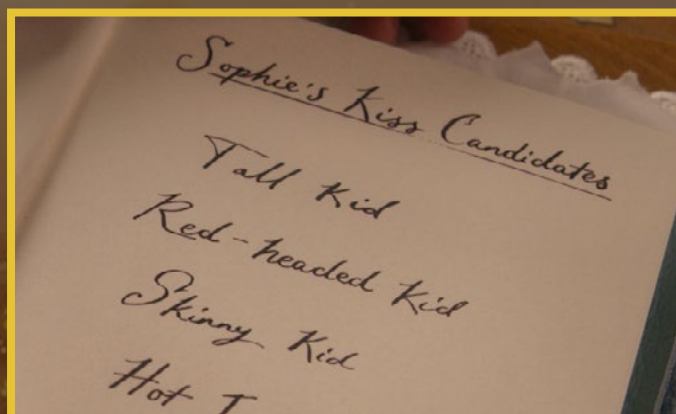 Sophie's Kiss Candidates
Tall Kid
Red-headed Kid
Skinny Kid
Hot